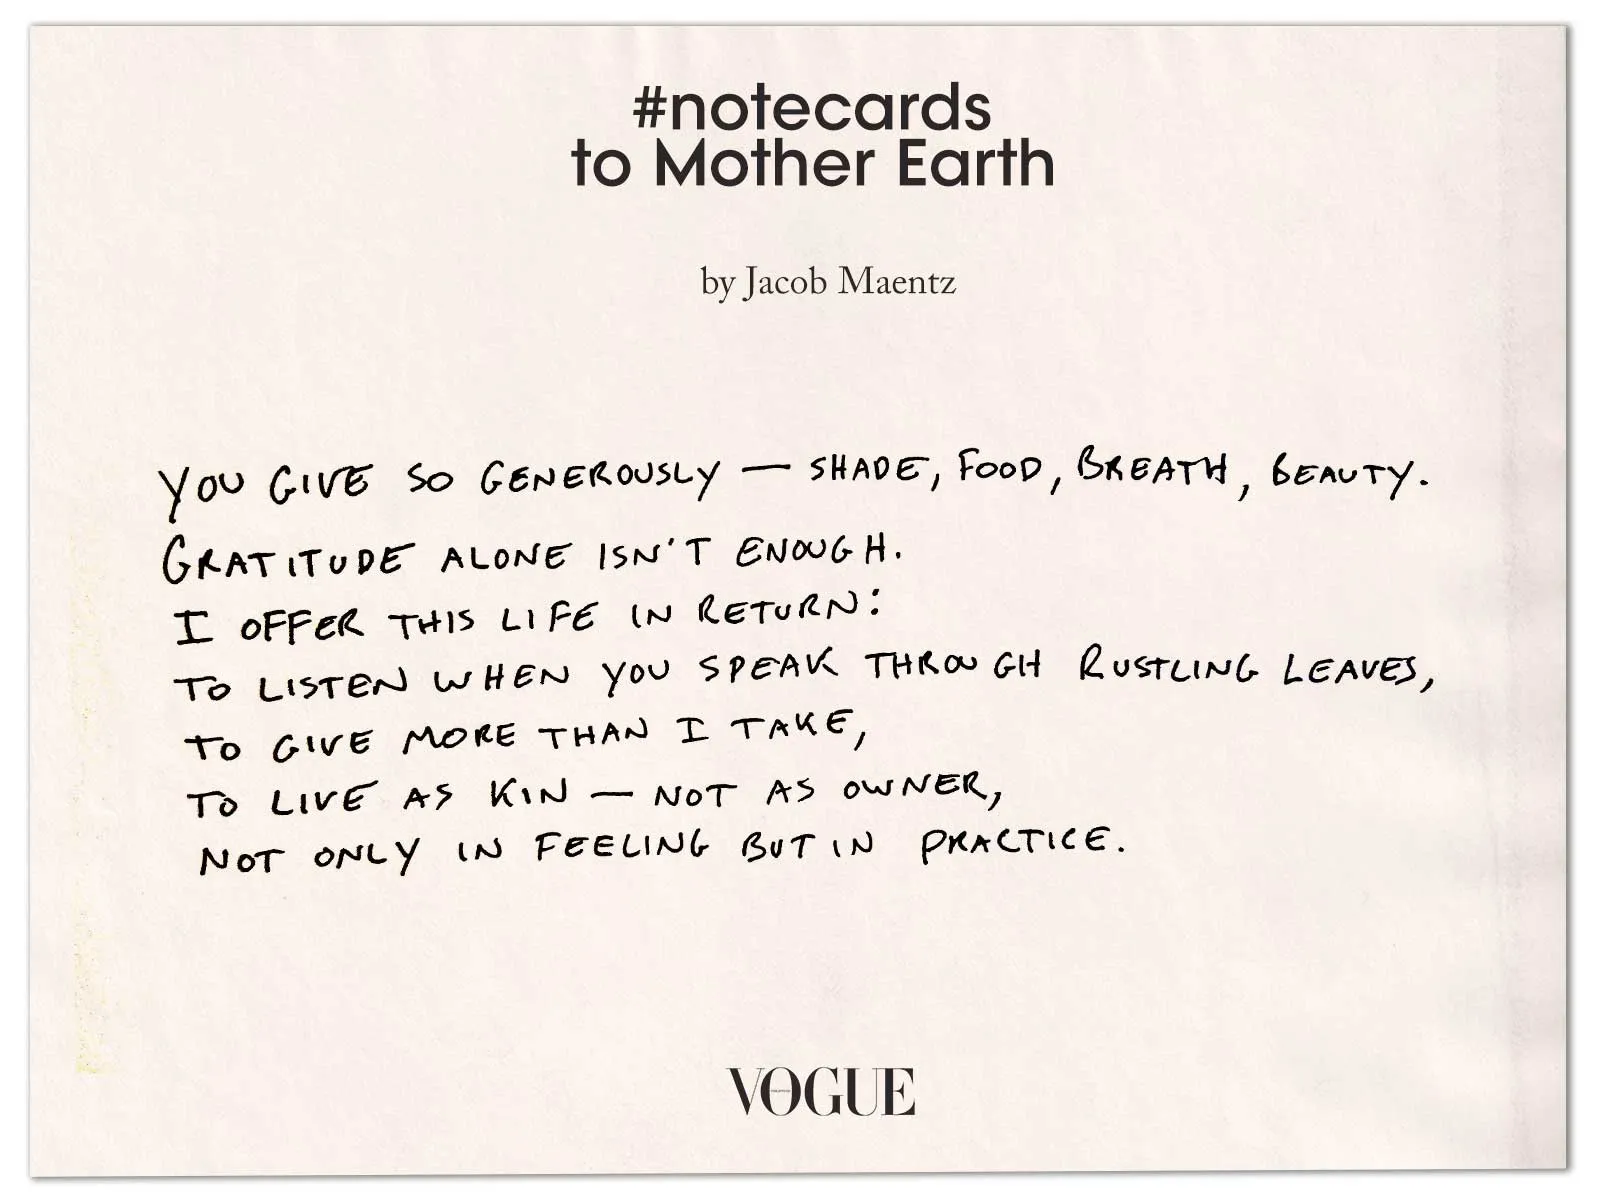 #notecards
to Mother Earth
by Jacob Maentz
YOU GIVE SO GENEROUSLY — SHADE, FOOD, BREATH, BEAUTY.
GRATITUDE ALONE ISN'T ENOUGH.
I OFFER THIS LIFE IN RETURN:
TO LISTEN WHEN YOU SPEAK THROUGH RUSTLING LEAVES,
TO GIVE MORE THAN I TAKE,
TO LIVE AS KIN — NOT AS OWNER,
NOT ONLY IN FEELING BUT IN PRACTICE.
VOGUE